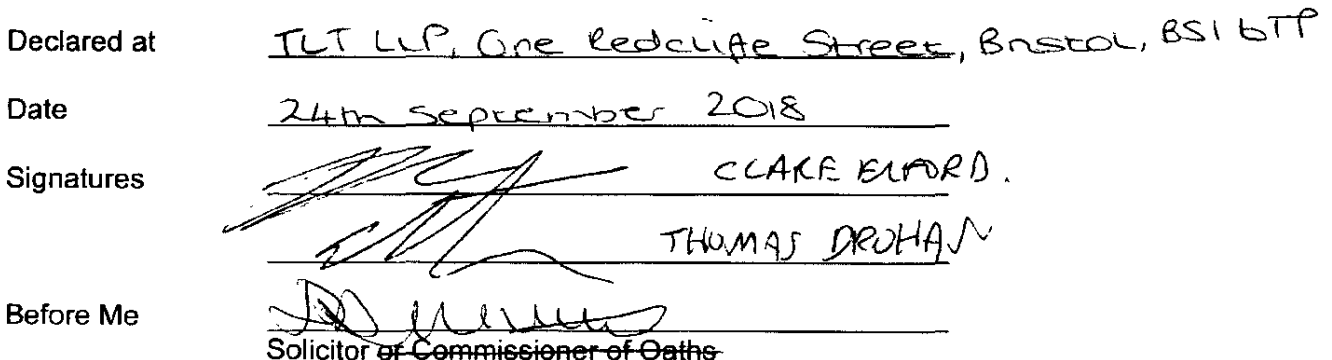 Declared at TLT LLP, One Redcliffe Street, Bristol, BS1 6TP
Date 24th September 2018
Signatures CLARE ELFORD.
THOMAS DROHAN
Before Me
Solicitor or Commissioner of Oaths